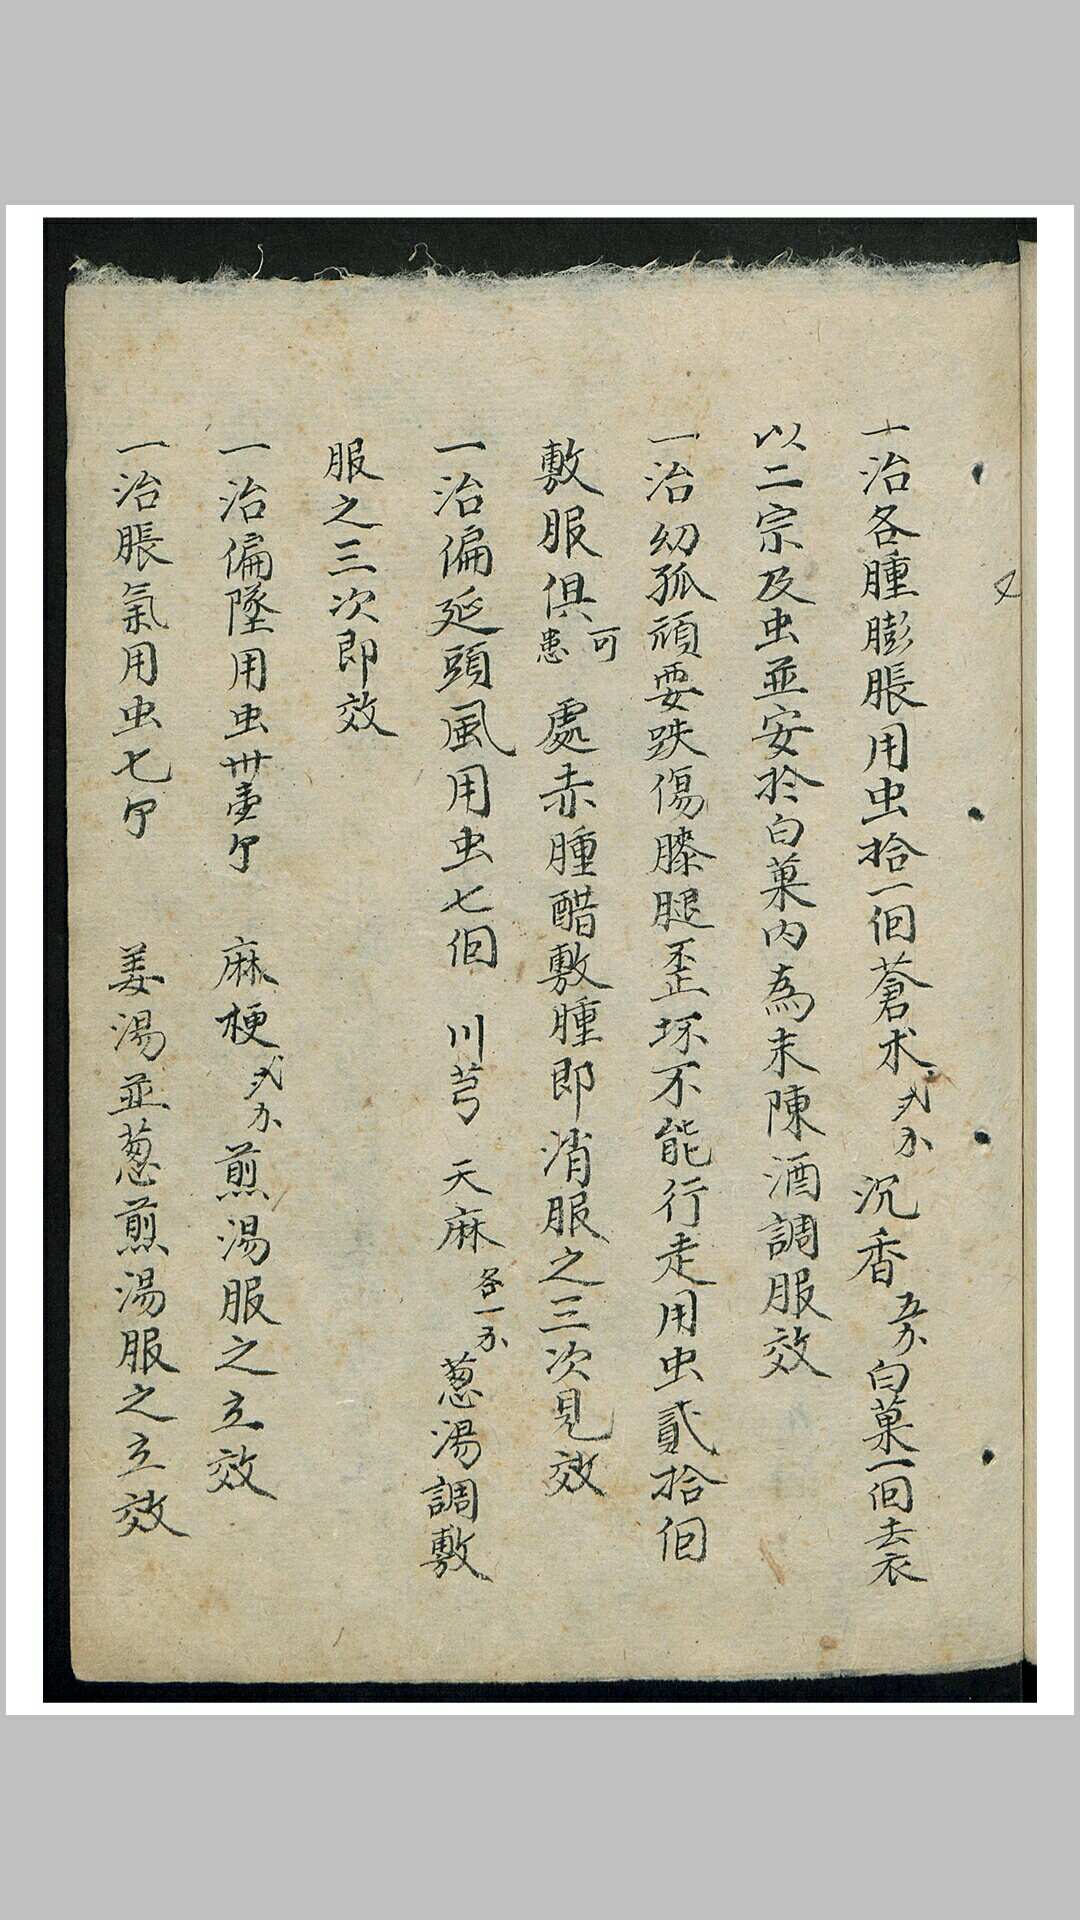 一治各腫膨脹用虫拾一個蒼术弍分沉香五分白菓一個去衣
以二宗及虫並安於白菓內為末陳酒調服效
一治幼孤頑耍跌傷膝腿歪坏不能行走用虫貳拾個
敷服俱可患處赤腫醋敷腫即消服之三次見效
一治偏延頭風用虫七個 川芎 天麻各一分葱湯調敷
服之三次即效
一治偏墜用虫卅壹个 麻梗弍分煎湯服之立效
一治脹氣用虫七个 姜湯並葱煎湯服之立效